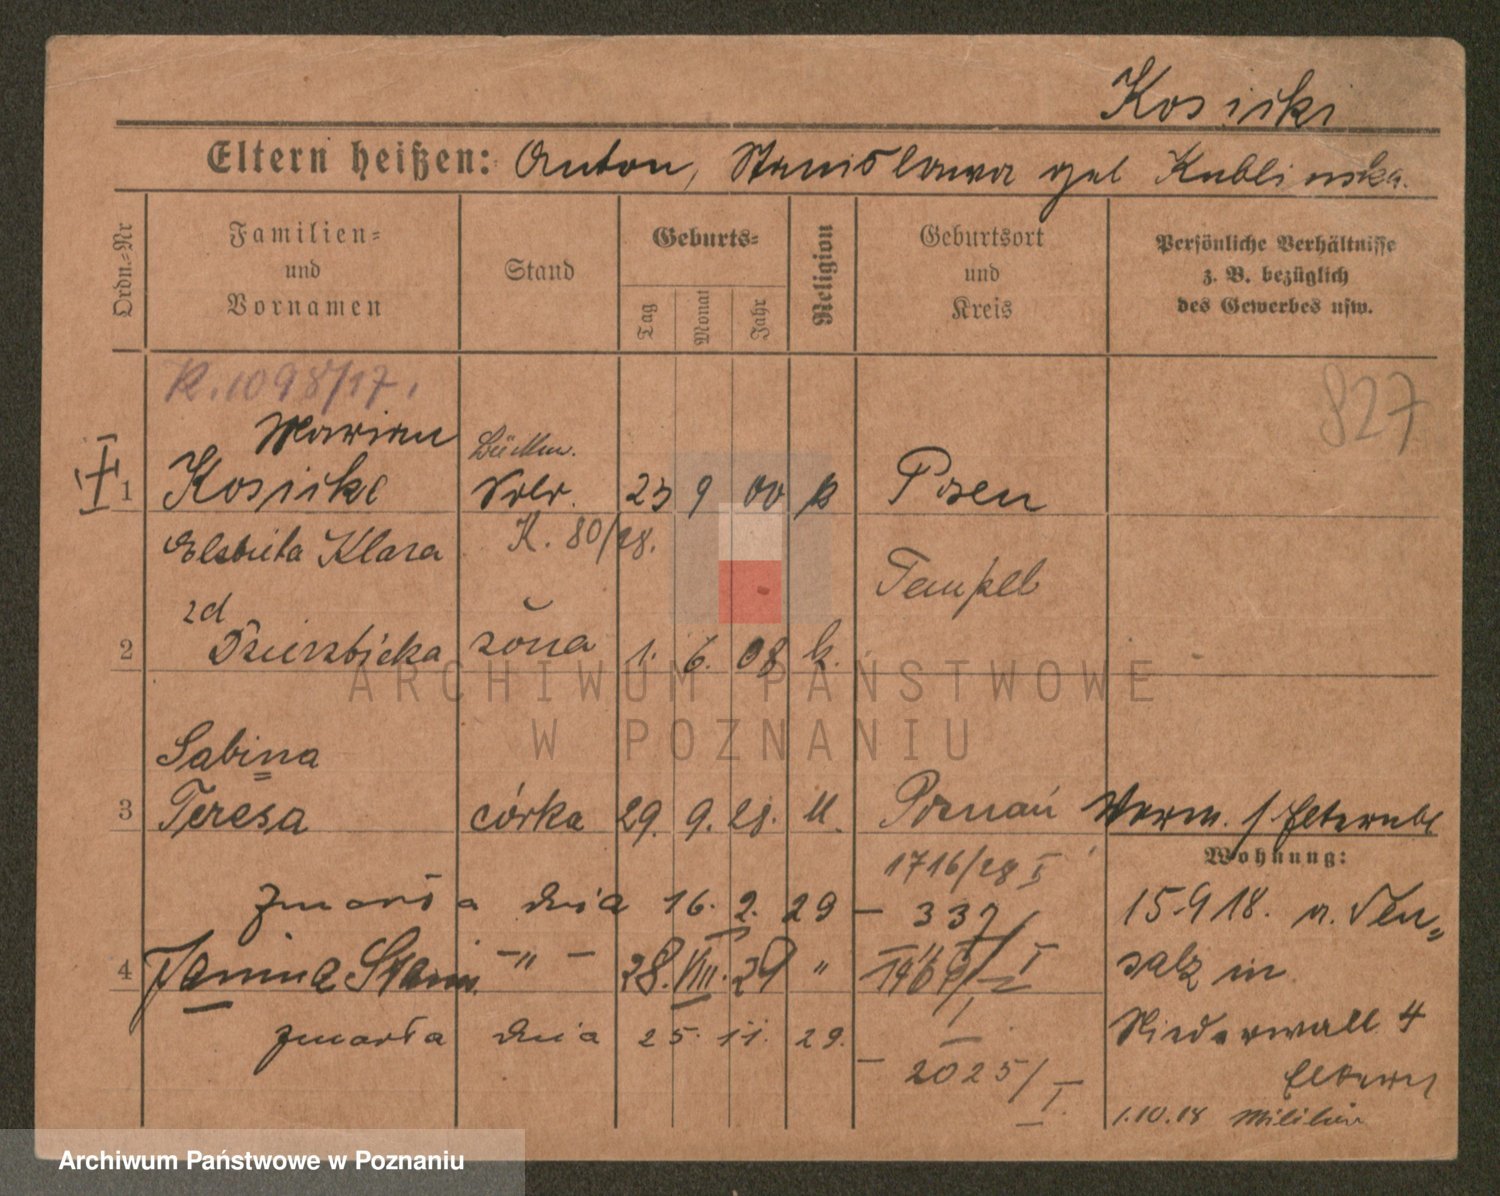 Kosicki
Eltern heißen: Anton, Stanislawa geb Kublinska.
Ordn.-Nr
Familien-
und
Vornamen
Stand
Geburts-
Tag
Monat
Jahr
Religion
Geburtsort
und
Kreis
Persönliche Verhältnisse
z. B. bezüglich
des Gewerbes usw.
R. 1098/17.
827
Marian
1 Kosicki 23 9 00 k Posen
Elżbieta Klara K. 80/28.
Tempel
zd
2 Dzierzbicka żona 1. 6. 08 k.
ARCHIWUM PAŃSTWOWE
W POZNANIU
Sabina
3 Teresa córka 29. 9. 28. Poznań Verm.
1716/28 I
Wohnung:
zmarła dnia 16. 2. 29 — 337/I
15.9.18. n. Neu-
4 Janina Stanis. —"— 28. VIII. 29 "
salz in
Niederwall 4
zmarła dnia 25. 11. 29. — 2025/I
Eltern
1.10.18 Militär
Archiwum Państwowe w Poznaniu